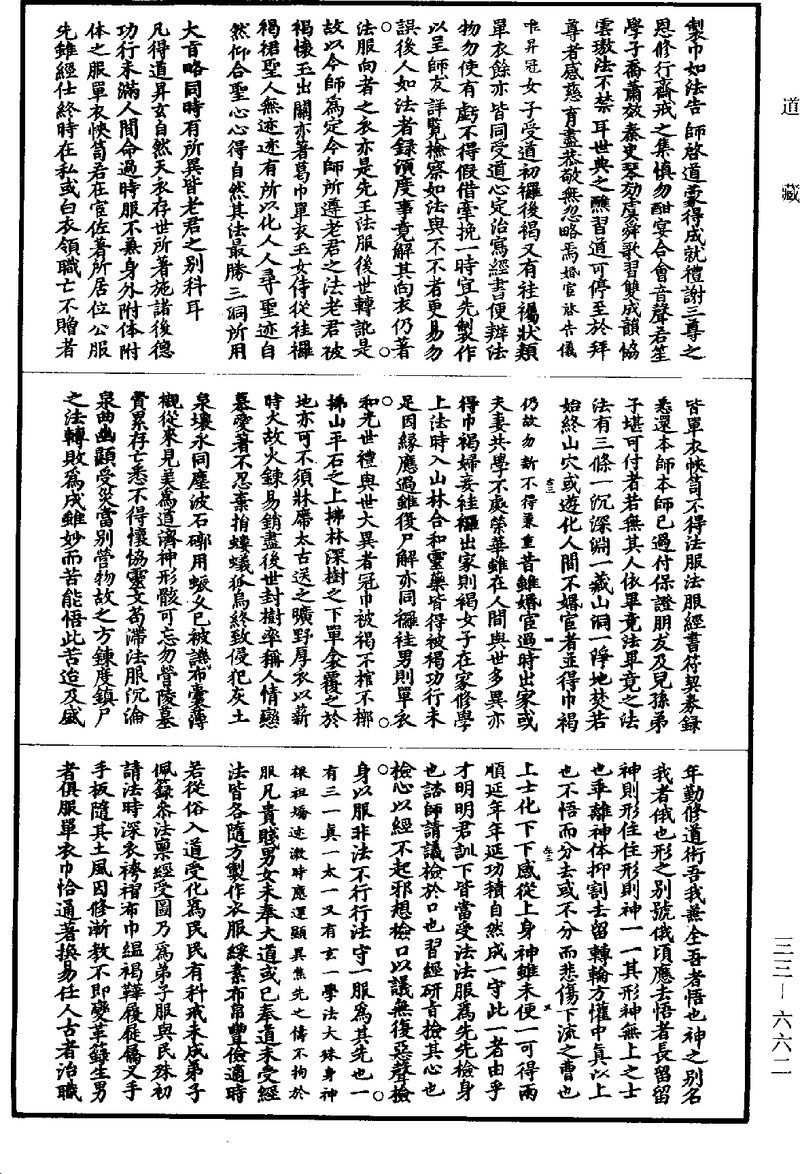 道藏
三三—六六二
製巾如法告師啓道蒙得成就禮謝三尊之
恩修行齋戒之集慎勿酣宴合會音聲若笙
學子喬蕭效秦史琴効虞舜歌習雙成韻協
雲璈法不禁耳世典之醮習道可停至於拜
尊者感慈育盡恭敬無忽略焉婚官啓告儀
唯昇冠女子受道初襬後褐又有袿襡狀類
單衣餘亦皆同受道心定治寫經書便辦法
物勿使有虧不得假借牽挽一時宜先製作
以呈師友詳覽檢察如法與不不者更易勿
誤後人如法者錄須度事竟解其向衣仍著
法服向者之衣亦是先王法服後世轉訛是
故以令師爲定令師所遵老君之法老君被
褐懷玉出關亦著葛巾單衣玉女侍從袿襬
褐裙聖人無迹迹有所以化人人尋聖迹自
然仰合聖心心得自然其法最勝三洞所用
大旨略同時有所異皆老君之別科耳
凡得道昇玄自然天衣存世所著施諸後德
功行未滿人間命過時服不棄身外附体附
体之服單衣帙笥若在官佐著所居位公服
先雖經仕終時在私或白衣領職亡不贈者
皆單衣帙笥不得法服法服經書符契券錄
悉還本師本師已過付保證朋友及兒孫弟
子堪可付者若無其人依畢竟法畢竟之法
法有三條一沉深淵一藏山洞一淨地焚若
始終山穴或遊化人間不婚官者並得巾褐
仍故勿新不得兼重昔雖婚官過時出家或
夫妻共學不處榮華雖在人間與世多異亦
得巾褐婦妾袿襬出家則褐女子在家修學
上法時入山林合和靈藥皆得被褐功行未
足因緣應過雖復尸解亦同襬袿男則單衣
和光世禮與世大異者冠巾被褐不棺不槨
拂山平石之上拂林深樹之下單衾覆之於
地亦可不須牀席太古送之曠野厚衣以薪
時大故火鍊易銷盡後世封樹率稱人情戀
慕愛著不忍棄捐螻蟻狐鳥終致侵犯灰土
泉壤永同塵波石槨用蜧又已被譏布囊薄
櫬從來見美爲道濟神形骸可忘勿營陵墓
費累存亡悉不得懷協靈文苟滯法服沉淪
泉曲幽顯受災當別營物故之方鍊度鎮尸
之法轉敗爲成雖妙而苦能悟此苦迨及盛
年勤修道術吾我無全吾者悟也神之別名
我者俄也形之別號俄頃應去悟者長留留
神則形住住形則神一一其形神無上之士
也乖離神体抑割去留轉輪方懽中真以上
也不悟而分去或不分而悲傷下流之曹也
上士化下下感從上身神雖未便一可得兩
順延年年延功積自然成一守此一者由乎
才明明君訓下皆當受法法服爲先先檢身
也諮師請議檢於口也習經研旨檢其心也
檢心以經不起邪想檢口以議無復惡聲檢
身以服非法不行行法守一服爲其先也一
有三一真一太一又有玄一學法大殊身神
裸袒矯迹激時應運顯異焦先之儔不拘於
服凡貴賤男女未奉大道或已奉道未受經
法皆各隨方製作衣服綵素布帛豐儉適時
若從俗入道受化爲民民有科戒未成弟子
佩籙希法稟經受圖乃爲弟子服與民殊初
請法時深衣袴褶布巾緼褐鞾履屣屩叉手
手板隨其土風因修漸教不即變革籙生男
者俱服單衣巾恰通著換易任人古者治職